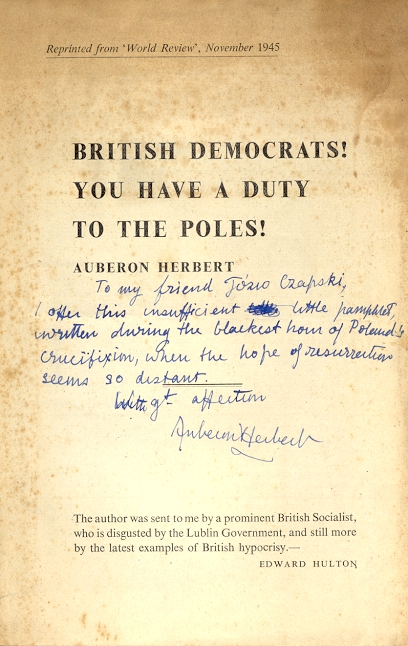 Reprinted from 'World Review', November 1945
BRITISH DEMOCRATS!
YOU HAVE A DUTY
TO THE POLES!
AUBERON HERBERT
To my friend Józio Czapski,
I offer this insufficient little pamphlet,
written during the blackest hour of Poland's
crucifixion, when the hope of resurrection
seems so distant.
With gt affection
Auberon Herbert
The author was sent to me by a prominent British Socialist,
who is disgusted by the Lublin Government, and still more
by the latest examples of British hypocrisy.—
EDWARD HULTON